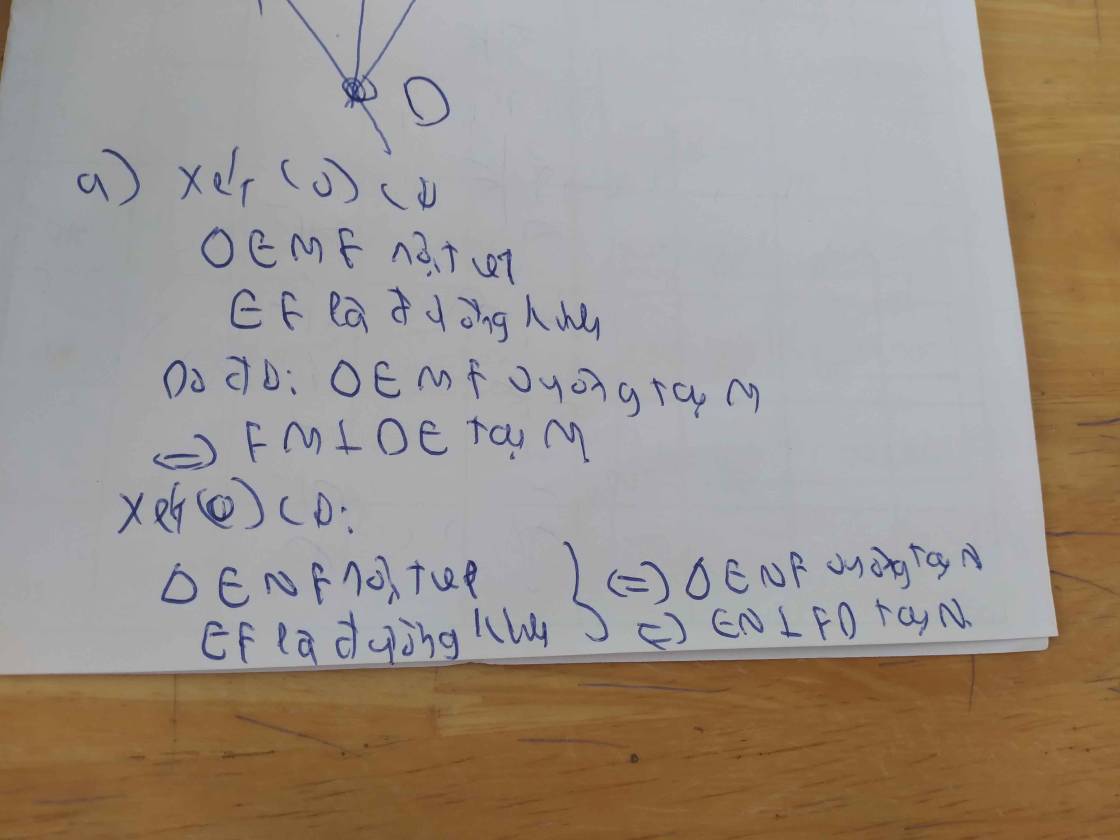 D
a) Xét (O) có
ΔEMF nội tiếp
EF là đường kính
Do đó: ΔEMF vuông tại M
<=> FM⊥DE tại M
Xét (O) có:
ΔENF nội tiếp } <=> ΔENF vuông tại N
EF là đường kính <=> EN⊥FD tại N